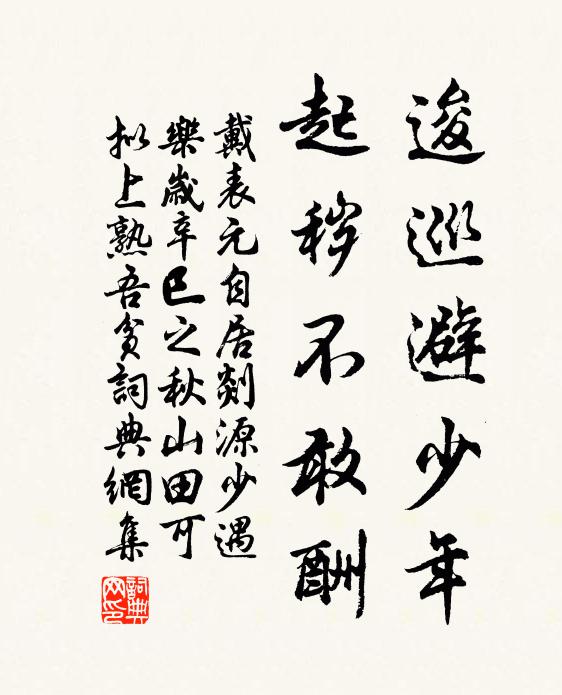 逡巡避少年
起穢不敢酬
戴表元自居剡源少遇
樂歲辛巳之秋山田可
擬上熟吾貧詞典網集
詞典